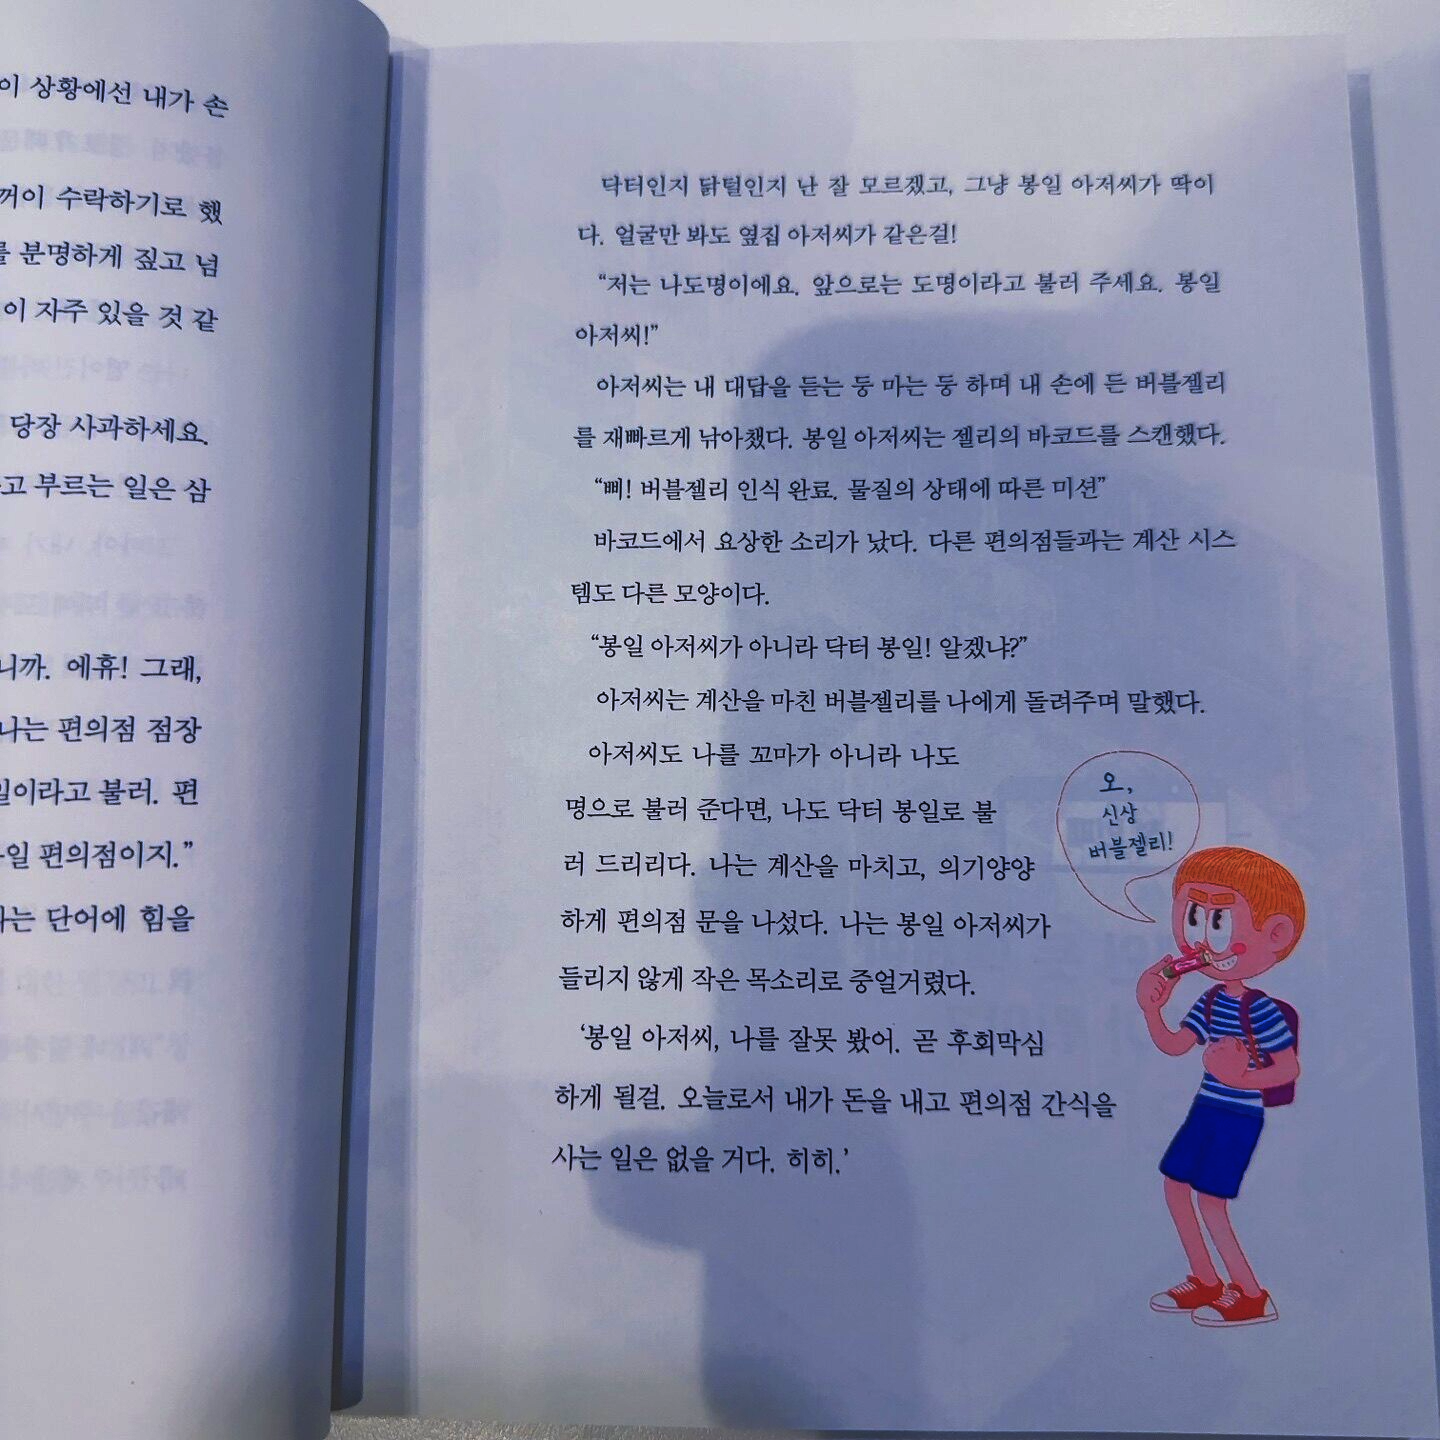 이 상황에선 내가 손
꺼이 수락하기로 했
를 분명하게 짚고 넘
이 자주 있을 것 같
당장 사과하세요.
고 부르는 일은 삼
니까. 에휴! 그래,
나는 편의점 점장
일이라고 불러. 편
일 편의점이지.”
라는 단어에 힘을
닥터인지 닭털인지 난 잘 모르겠고, 그냥 봉일 아저씨가 딱이
다. 얼굴만 봐도 옆집 아저씨가 같은걸!
“저는 나도명이에요. 앞으로는 도명이라고 불러 주세요. 봉일
아저씨!”
아저씨는 내 대답을 듣는 둥 마는 둥 하며 내 손에 든 버블젤리
를 재빠르게 낚아챘다. 봉일 아저씨는 젤리의 바코드를 스캔했다.
“삐! 버블젤리 인식 완료. 물질의 상태에 따른 미션”
바코드에서 요상한 소리가 났다. 다른 편의점들과는 계산 시스
템도 다른 모양이다.
“봉일 아저씨가 아니라 닥터 봉일! 알겠냐?”
아저씨는 계산을 마친 버블젤리를 나에게 돌려주며 말했다.
아저씨도 나를 꼬마가 아니라 나도
명으로 불러 준다면, 나도 닥터 봉일로 불
러 드리리다. 나는 계산을 마치고, 의기양양
하게 편의점 문을 나섰다. 나는 봉일 아저씨가
들리지 않게 작은 목소리로 중얼거렸다.
‘봉일 아저씨, 나를 잘못 봤어. 곧 후회막심
하게 될걸. 오늘로서 내가 돈을 내고 편의점 간식을
사는 일은 없을 거다. 히히.’
오,
신상
버블젤리!